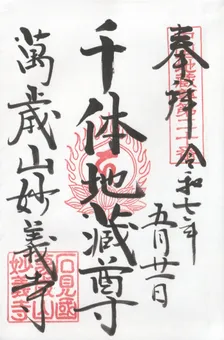 奉拝 令和七年
五月廿一日
千体地蔵尊
萬歳山妙義寺
石見國
萬歳山
妙義寺